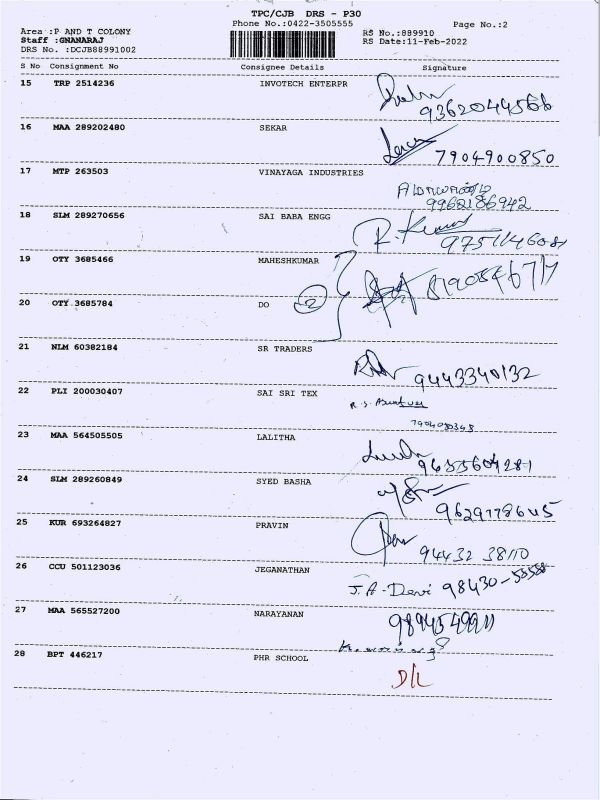 TPC/CJB DRS - P30
Phone No.:0422-3505555
Page No.:2
Area :P AND T COLONY
Staff :GNANARAJ
DRS No. :DCJB88991002
RS No.:889910
RS Date:11-Feb-2022
S No Consignment No Consignee Details Signature
15 TRP 2514236 INVOTECH ENTERPR
9362044566
16 MAA 289202480 SEKAR
7904900850
17 MTP 263503 VINAYAGA INDUSTRIES
9962186942
18 SLM 289270656 SAI BABA ENGG
R. Kumar
9751146081
19 OTY 3685466 MAHESHKUMAR
20 OTY 3685784 DO 2
21 NLM 60382184 SR TRADERS
9443340132
22 PLI 200030407 SAI SRI TEX
23 MAA 564505505 LALITHA
24 SLM 289260849 SYED BASHA
25 KUR 693264827 PRAVIN
94432 38110
26 CCU 501123036 JEGANATHAN
J. A - Devi 98430-55558
27 MAA 565527200 NARAYANAN
28 BPT 446217 PHR SCHOOL
D/L